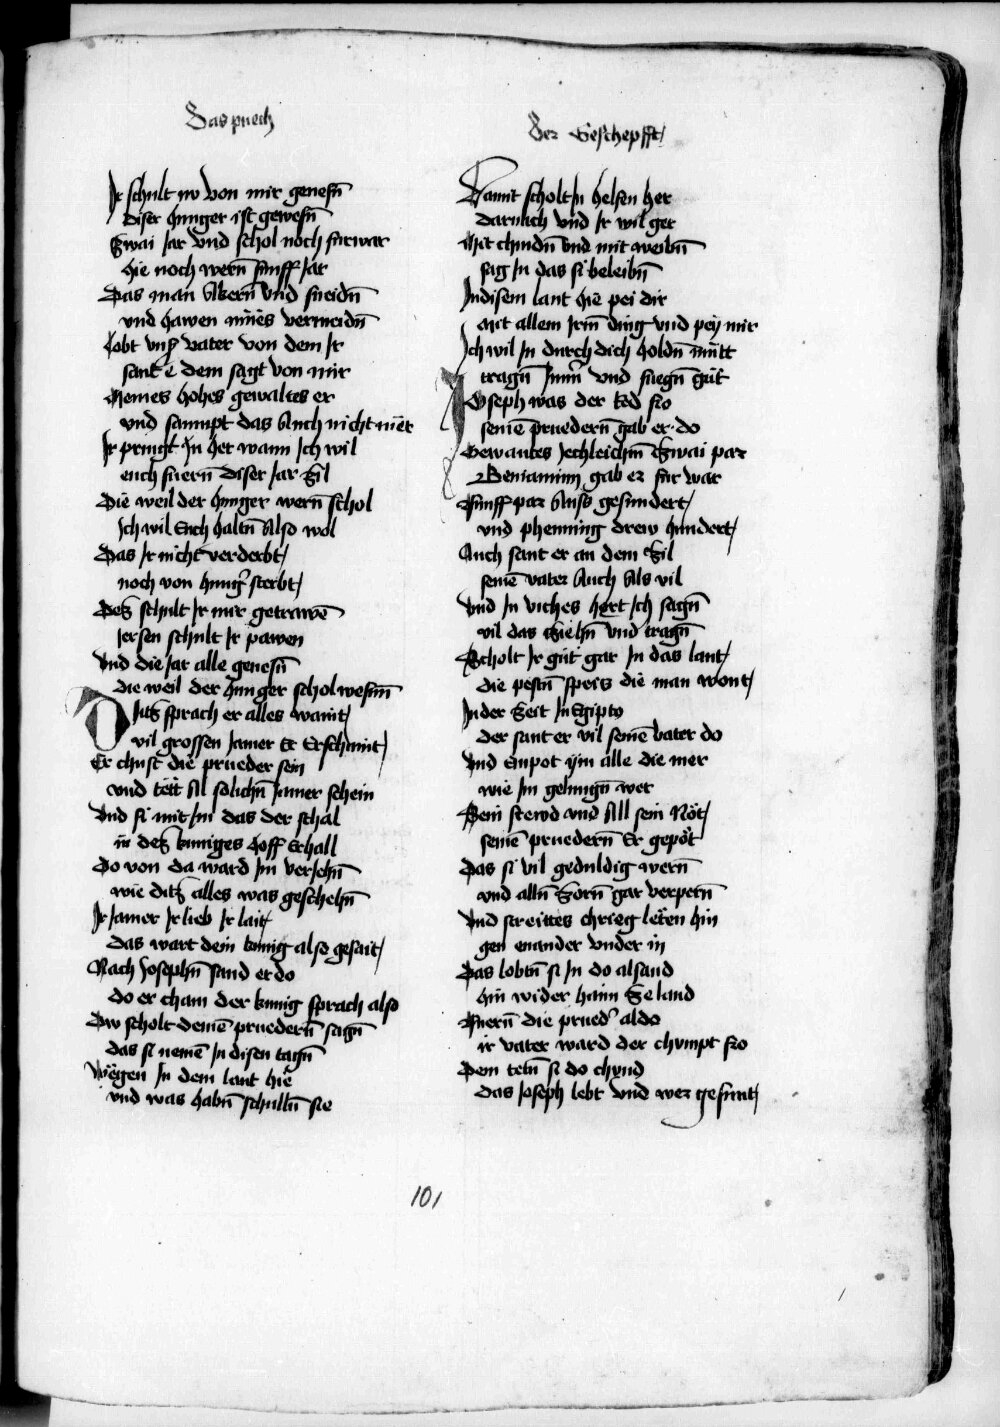 Das puech
Der Geschepfft
Jr schult nv von mir genesn̄
diser hunger ist gewesn̄
Zwai Jar vnd schol noch furwar
hie noch wern̄ funff Jar
Das man Akern̄ vnd sneidn̄
vnd hawen mues vermeidn̄
Lobt vnsz vater von dem Jr
sant e dem sagt von mir
Meines hohes gewaltes er
vnd sampt das Auch nicht mer
Jr pringt Jn her wann Jch wil
euch fuern̄ diser Jar Zil
Die weil der hunger wern̄ schol
Jch wil Euch haltn̄ Also wol
Das Jr nicht verderbt
noch von hung̉ sterbt
Desz schult Jr mir getrawē
Jersen schult Jr pawen
Vnd die Jar alle genesn̄
die weil der hunger schol wesnn̄
Ditz sprach er alles waint
vil grossen Jamer Er Erschaint
Er chust die prueder sein
vnd tett Al solichn̄ Jamer schein
Vnd si mit Jm das der schal
in desz kuniges hoff Erhall
Do von da ward Jm verJehn̄
wie ditz alles was geschehn̄
Jr Jamer Jr lieb Jr lait
das wart dem kunig also gesait
Nach Josephn̄ sand er do
do er cham der kunig sprach also
Dw scholt deinē pruedern̄ sagn̄
das si nemē Jn disen tagn̄
Wegen Jn dem lant hie
vnd was habn̄ schulln̄ sie
Damit scholt Jn helfen her
darnach vnd Jr wil ger
Mit chindn̄ vnd mit weibn̄
sag Jn das si beleibn̄
Jndisem lant hie pei dir
Mit allem Jrm̄ ding vnd pey mir
Jch wil Jn durch dich holdn̄ mutt
tragn̄ Jmm̉ vnd fuegn̄ gut
Joseph was der red fro
seinē pruedern̄ gab er do
Gewantes Jechleichm̄ Zwai par
Beniaminn gab er fur war
Funff par Auss gesundert
vnd phenning drew hundert
Auch sant er an dem Zil
seinē vater Auch Als vil
Vnd Jn viches hort Jch sagn̄
vil das Ziehn̄ vnd tragn̄
Scholt Jr gut gar Jn das lant
die pestn̄ speis die man vont
Jnder Zeit Jn Egipto
der sant er vil seinē vater do
Vnd Enpot ym alle die mer
wie Jm gelungn̄ wer
Sein frewd vnd All sein Not
seinē pruedern̄ Er gepot
Das si vil geduldig wern̄
vnd alln̄ Zorn̄ gar verpern̄
Vnd streittes chrieg leten hin
gen einander vnder in
Das lobtn̄ si Jn do alsand
hin wider haim Ze land
Fuern̄ die prued̉ aldo
ir vater ward der chvmpt fro
Dem tetn̄ si do chund
das Joseph lebt vnd wer gesunt
101